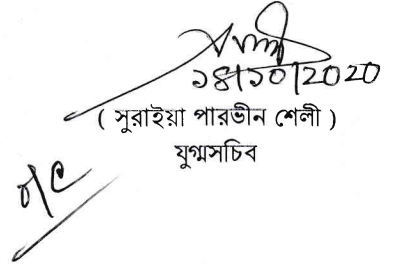 ১৪/১০/2020
( সুরাইয়া পারভীন শেলী )
যুগ্মসচিব